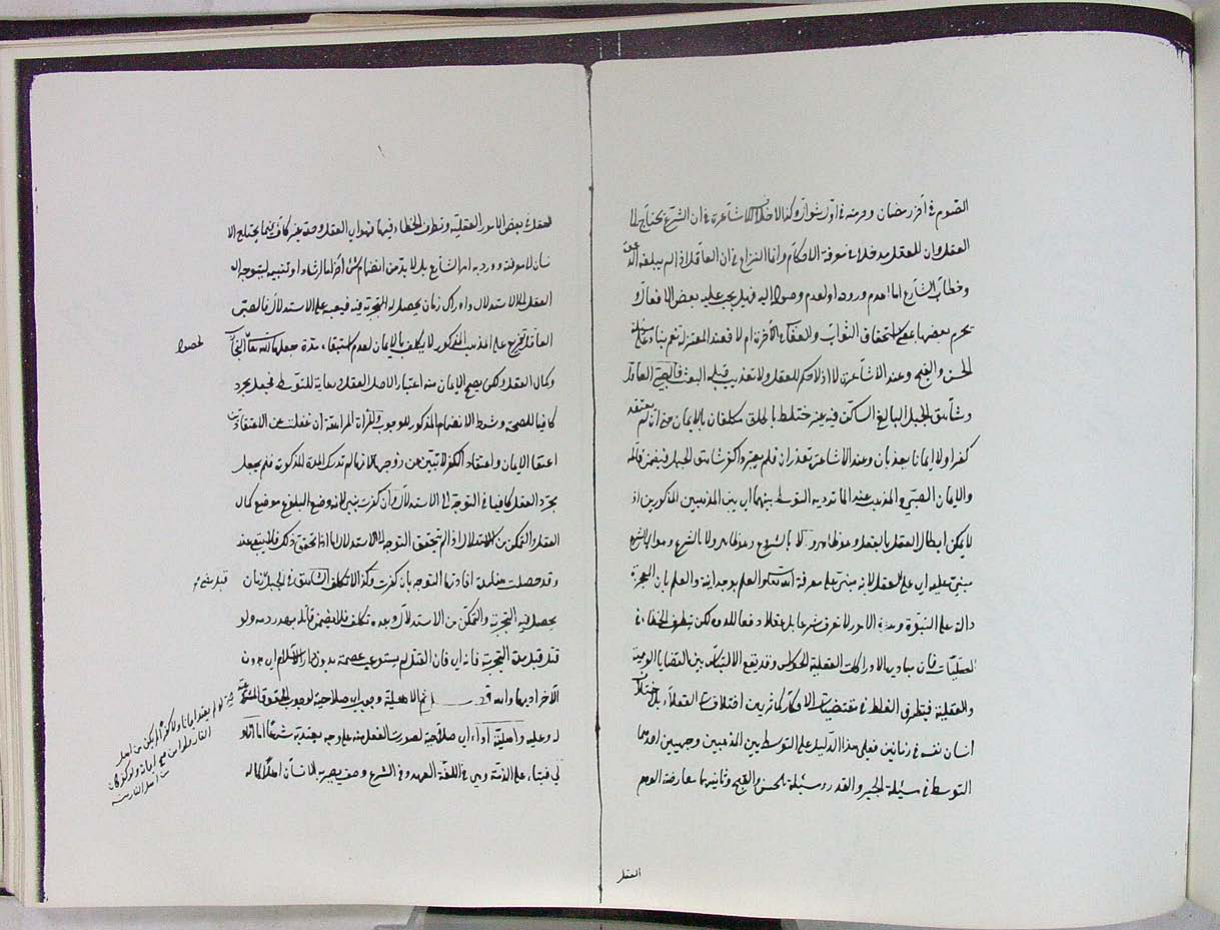 الصوم في آخر رمضان وحرمته في أول شوال وكذا لا خلاف للاشاعرة في ان الشرع يحتاج الى
العقل وان للعقل مدخلا في معرفة الاحكام وانما النزاع في ان العاقل اذا لم يبلغه الدعوة
وخطاب الشارع اما لعدم وروده او لعدم وصوله اليه فهل يجب عليه بعض الافعال و
يحرم بعضها بمعنى استحقاق الثواب والعقاب في الآخرة ام لا فعند المعتزلة نعم بناء على مسئلة
الحسن والقبح وعند الاشاعرة لا اذ لا حكم للعقل ولا تعذيب قبل البعثة فالصبي العاقل
وشاهق الجبل البالغ الساكن فيه غير مختلط بالخلق مكلفان بالايمان حتى ان لم يعتقدا
كفرا ولا ايمانا يعذبان وعند الاشاعرة يعذران فلم يعتبر كفر شاهق الجبل فيضمن قاتله
والايمان الصبي والمذهب عند الماتريدية التوسط بينهما اي بين المذهبين المذكورين اذ
لا يمكن ابطال العقل بالعقل وهو ظاهر ولا بالشرع وهو ظاهر ولا بالشرع وهو اي الشرع
مبني عليه اي على العقل لانه مبني على معرفة الله تعالى والعلم بوحدانيته والعلم بان المعجزة
دالة على النبوة وهذه الامور لا تعرف شرعا بل عقلا دفعا للدور لكن يتطرق الخطاء في
العقليات فان مبادي الادراكات العقلية الحواس وقد يقع الالتباس بين القضايا الوهمية
والعقلية فيتطرق الغلط في مقتضيات الافكار كما ترى من اختلافات العقلاء بل اختلاف
انسان نفسه في زمانين فعلى هذا الدليل على التوسط بين المذهبين وجهين احدهما
التوسط في مسئلة الجبر والقدر ومسئلة الحسن والقبح وثانيهما معارضة الوهم
العقل
العقل في بعض الامور العقلية وتطرق الخطاء فيها فهو اي العقل وحده غير كاف فيما يحتاج الا
نسان لا معرفته وورد به امر الشارع بل لا بد من انضمام شئ آخر اما ارشاد او تنبيه ليتوجه اليه
العقل الى الاستدلال وادراك زمان يحصل له التجربة فيه فيعينه على الاستدلال فالصبي
العاقل تفريع على المذهب المذكور لا يكلف بالايمان لعدم استيفاء مدة جعلها الله تعالى
لحصول
وكمال العقل ولكن يصح الايمان منه اعتبارا لاصل العقل ورعاية للتوسط فجعل مجرد
كافيا للصحة وشرط الانضمام المذكور للوجوب والمرأة المراهقة ان غفلت عن الاعتقادين
اعتقاد الايمان واعتقاد الكفر لا تبين عن زوجها لانها لم تدرك المدة المذكورة فلم يجعل
مجرد العقل كافيا في التوجه الى الاستدلال وان كفرت تبين لانه وضع البلوغ موضع كمال
العقل والتمكن من الاستدلال اذا لم يتحقق التوجه الى الاستدلال اما اذا تحقق ذلك فلا يبقى عذر
وقد حصلت افادتها التوجه بان كفرت وكذا لا تكلف الشاهق في الجبل زمان
يحصل فيه التجربة والتمكن من الاستدلال وبعده تكلف فلا يضمن قاتله يهدر دمه ولو
قتل قبل مدة التجربة فانه اي فان القتل لم يستوجب عصمة بدون دار الاسلام اي بدون
الاحراز بها والله
له وعليه واهلية اداء اي صلاحية لصدور الفعل منه على وجه يعتد به شرعا اما الاولى
فبناء على الذمة وهي في اللغة العهد وفي الشرع وصف يصير به الانسان اهلا لما له